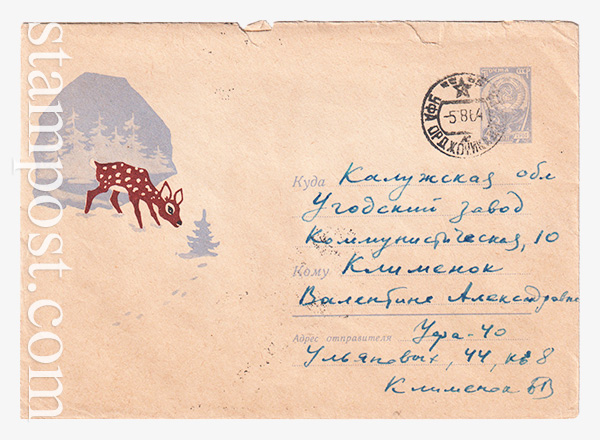 stampost.com
ПОЧТА СССР
УФА ОРДЖОНИК
-5 8 64
Куда Калужская обл
Угодский завод
Коммунистическая, 10
Кому Клименок
Валентине Александровне
Адрес отправителя Уфа-40
Ульяновых, 44, кв 8
Клименок БВ